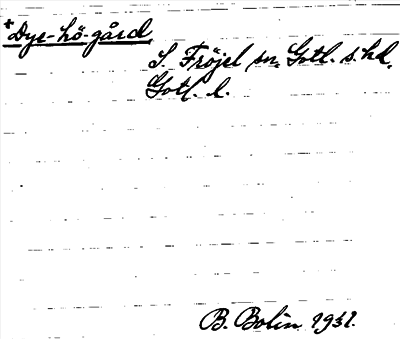 *Dye-hö-gård
S. Fröjel sn. Gotl. s. hd.
Gotl. l.
B. Bolin 1931.